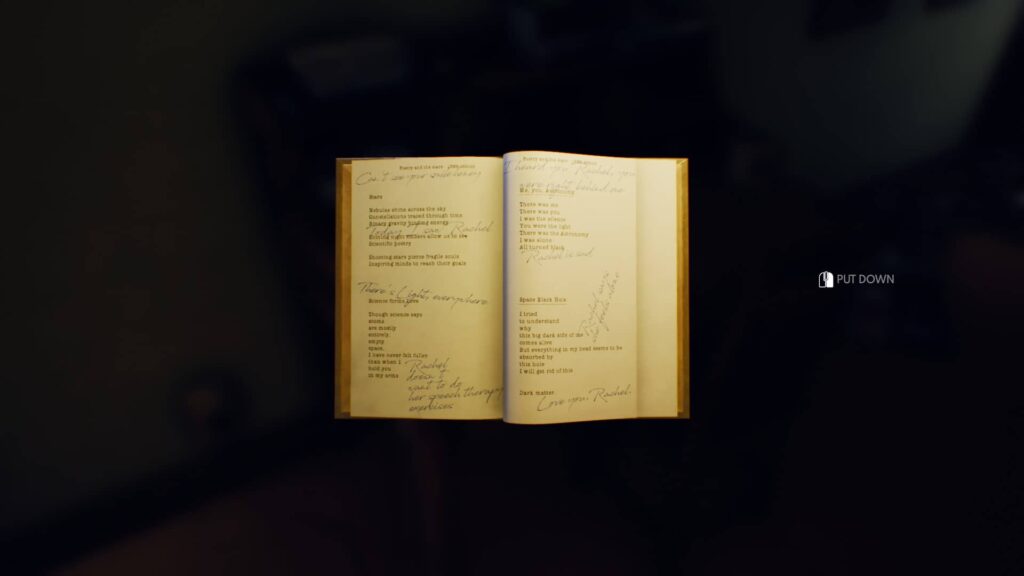 Poetry and the stars
Can't see your
Stars
Nebulas shine across the sky
Constellations traced through time
Binary gravity energy
Today I saw Rachel
Shining night allow us to
Scientific poetry
Shooting stars pierce fragile souls
Inspiring minds to reach their goals
There's Light, everywhere
Science forms Love
Though science says
atoms
are mostly
entirely,
empty
space,
I have never felt fuller
than when I
hold you
in my arms
Rachel
doesn't
want to do
her speech therapy
exercises
Poetry and the stars
I heard you, Rachel, you
were right behind me
Me, you, Astronomy
There was me
There was you
I was the silence
You were the light
There was the Astronomy
I was alone
All turned black
Rachel is sad
Space Black Hole
I tried
to understand
why
this big dark side of me
comes alive
But everything in my head seems to be
absorbed by
this hole
I will get rid of this
Dark matter
Love you, Rachel
PUT DOWN